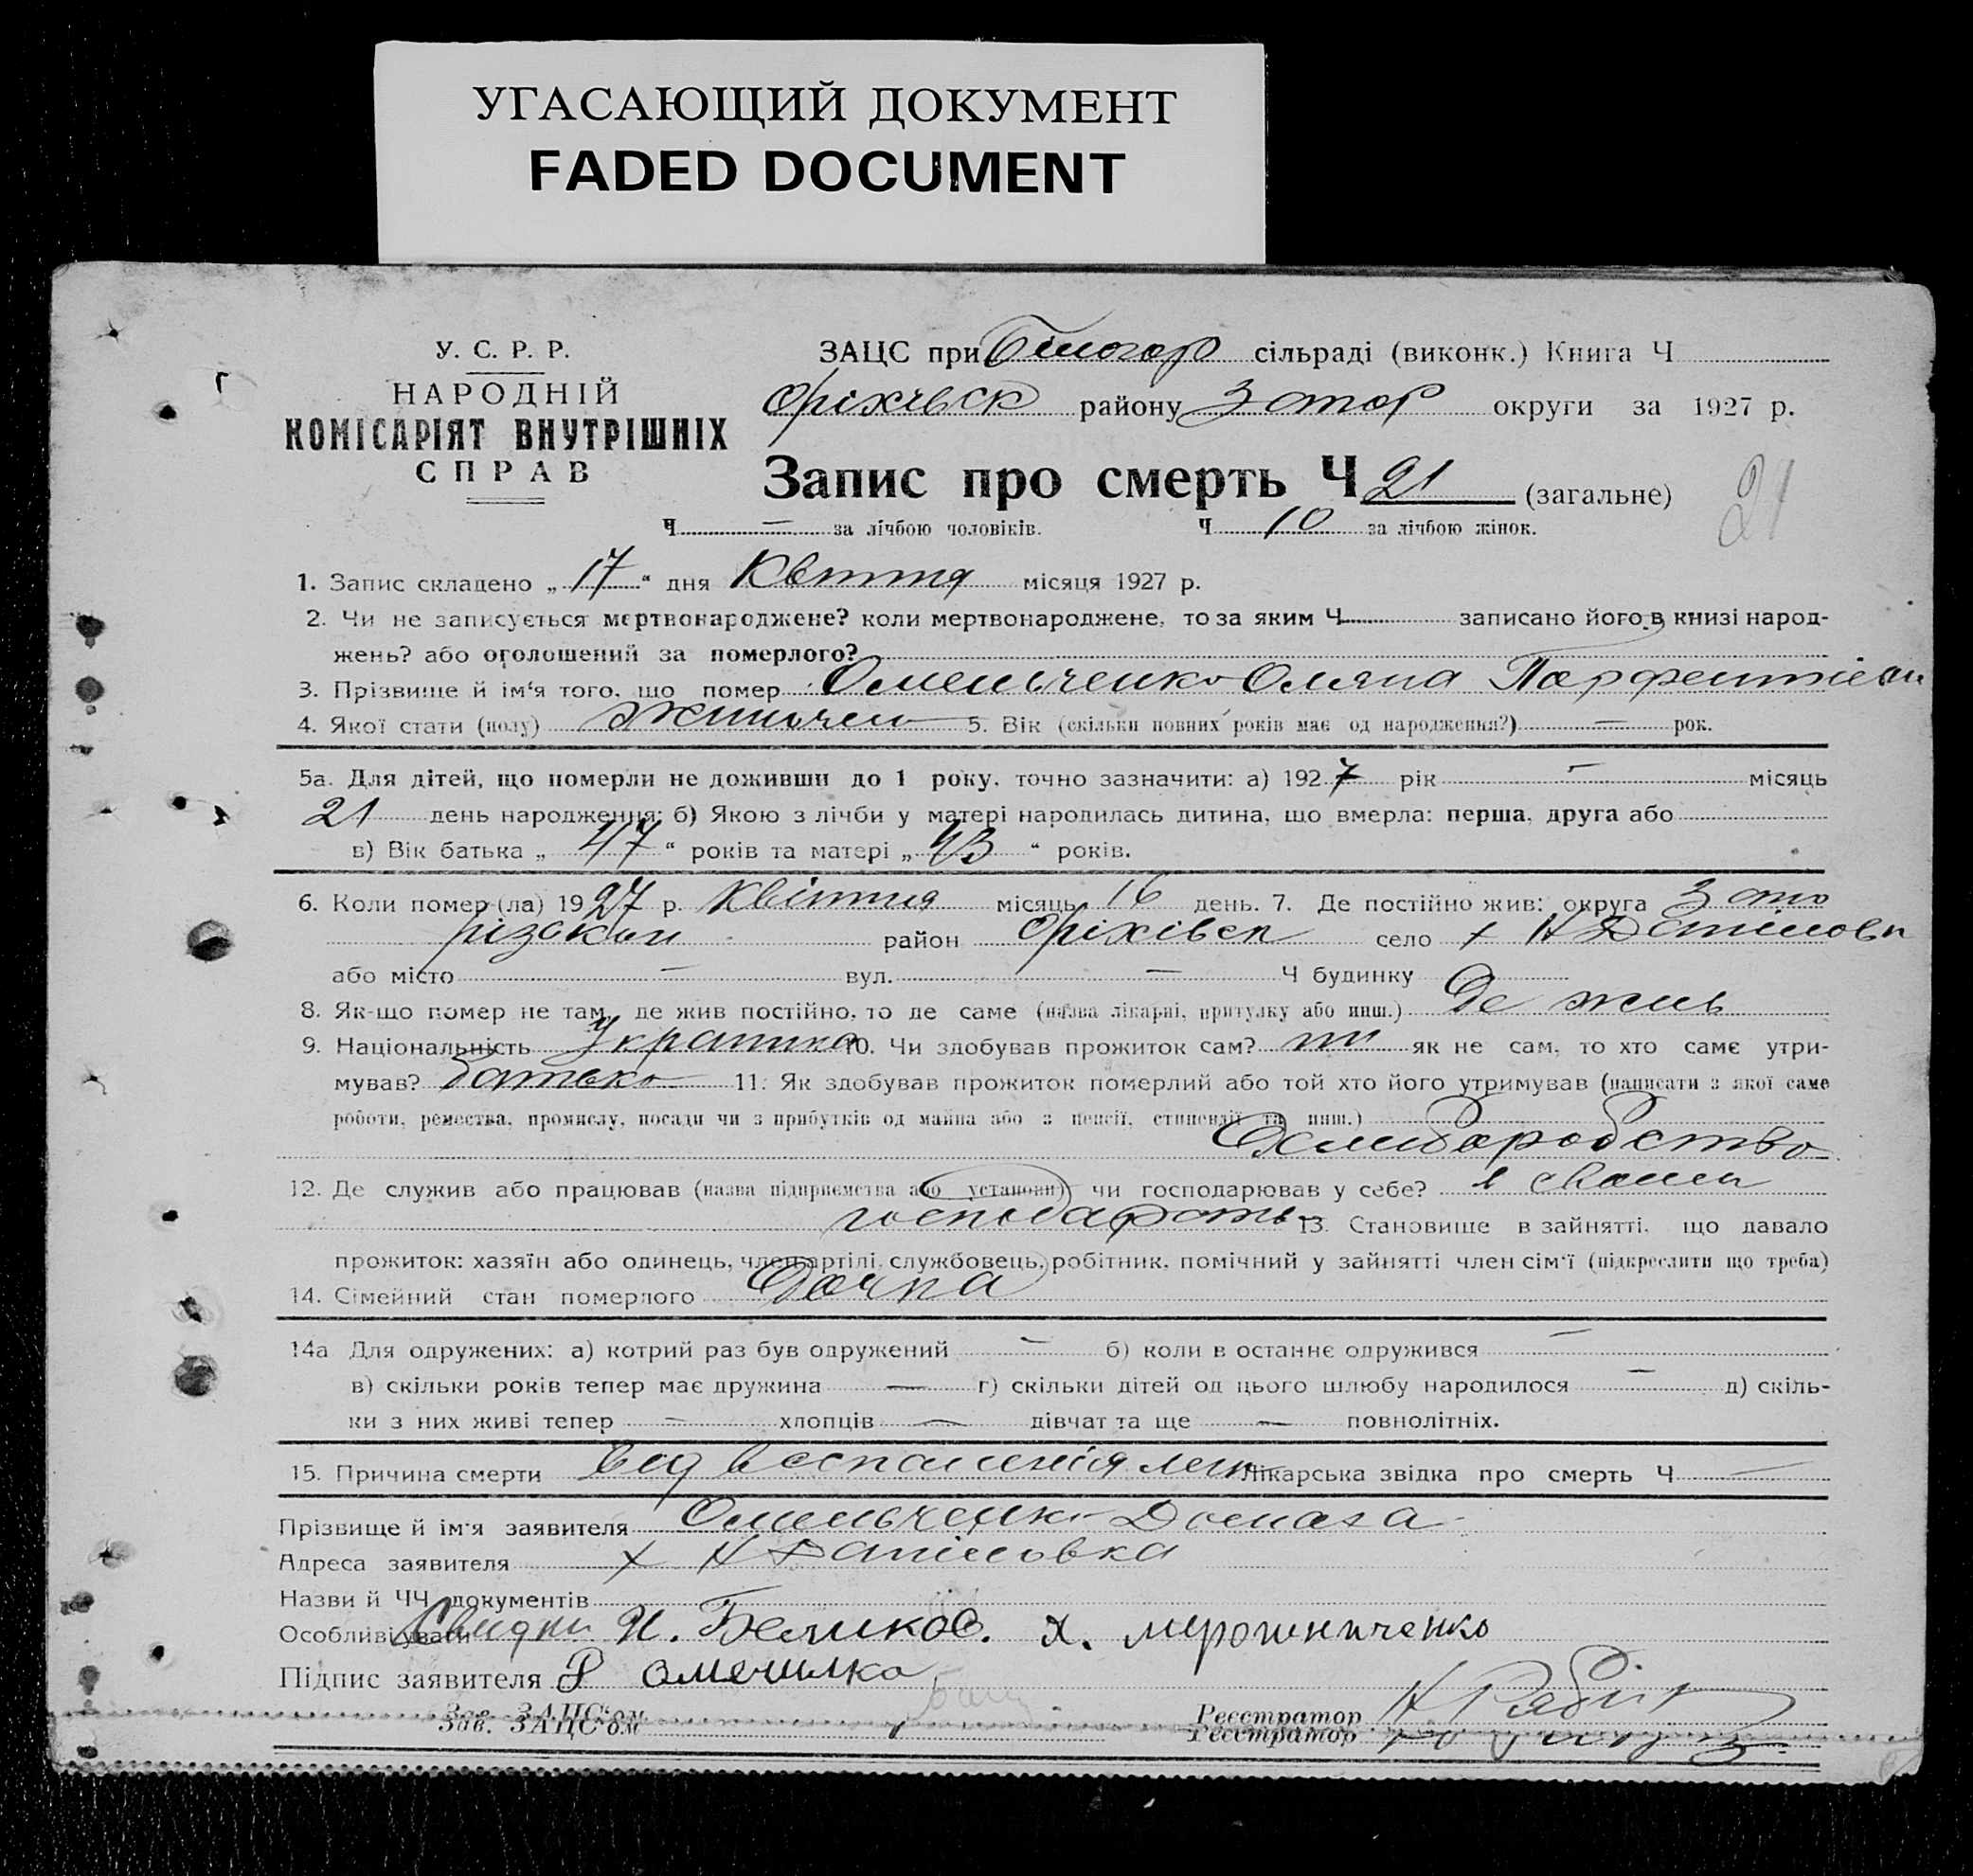 УГАСАЮЩИЙ ДОКУМЕНТ
FADED DOCUMENT
У. С. Р. Р.
НАРОДНІЙ
КОМІСАРІЯТ ВНУТРІШНІХ
СПРАВ
ЗАЦС при Білогор сільраді (виконк.) Книга Ч
Оріхівск району Запор округи за 1927 р.
Запис про смерть Ч 21 (загальне)
21
Ч — за лічбою чоловіків. Ч 10 за лічбою жінок.
1. Запис складено „ 17 “ дня Квітня місяця 1927 р.
2. Чи не записується мертвонароджене? коли мертвонароджене, то за яким Ч записано його в книзі народ-
жень? або оголошений за померлого?
3. Прізвище й ім‘я того, що помер Омельченко Оляна
4. Якої стати (полу) 5. Вік (скільки повних років має од народження?) — рок.
5а. Для дітей, що померли не доживши до 1 року, точно зазначити: а) 192 7 рік — місяць
21 день народження; б) Якою з лічби у матері народилась дитина, що вмерла: перша, друга або
в) Вік батька „ 47 “ років та матері „ 43 “ років.
6. Коли помер (ла) 19 27 р. квітня місяць 16 день. 7. Де постійно жив: округа Запо
різскан район Оріхівск село х Н
або місто — вул. — Ч будинку
8. Як-що помер не там, де жив постійно, то де саме (назва лікарні, притулку або инш.) Де жив
9. Національність Українка 10. Чи здобував прожиток сам? ні як не сам, то хто саме утри-
мував? батько 11. Як здобував прожиток померлий або той хто його утримував (написати з якої саме
роботи, ремества, промислу, посади чи з прибутків од майна або з пенсії, стипендії та инш.)
Хліборобство
12. Де служив або працював (назва підприємства або установи) чи господарював у себе? в своєм
господарстві 13. Становище в зайнятті, що давало
прожиток: хазяїн або одинець, член артілі, службовець, робітник, помічний у зайнятті член сім‘ї (підкреслити що треба)
14. Сімейний стан померлого Дочка
14а Для одружених: а) котрий раз був одружений — б) коли в останнє одружився —
в) скільки років тепер має дружина — г) скільки дітей од цього шлюбу народилося — д) скіль-
ки з них живі тепер — хлопців — дівчат та ще — повнолітніх.
15. Причина смерти від воспаленія лег Лікарська звідка про смерть Ч —
Прізвище й ім‘я заявителя Омельченко Домаха
Адреса заявителя х Н Даніловка
Назви й ЧЧ документів
Особливі уваги Свидки И. Беликов. Х. Мирошниченко
Підпис заявителя
Зав. ЗАЦС‘ом Реєстратор
Зав. ЗАЦС‘ом Реєстратор